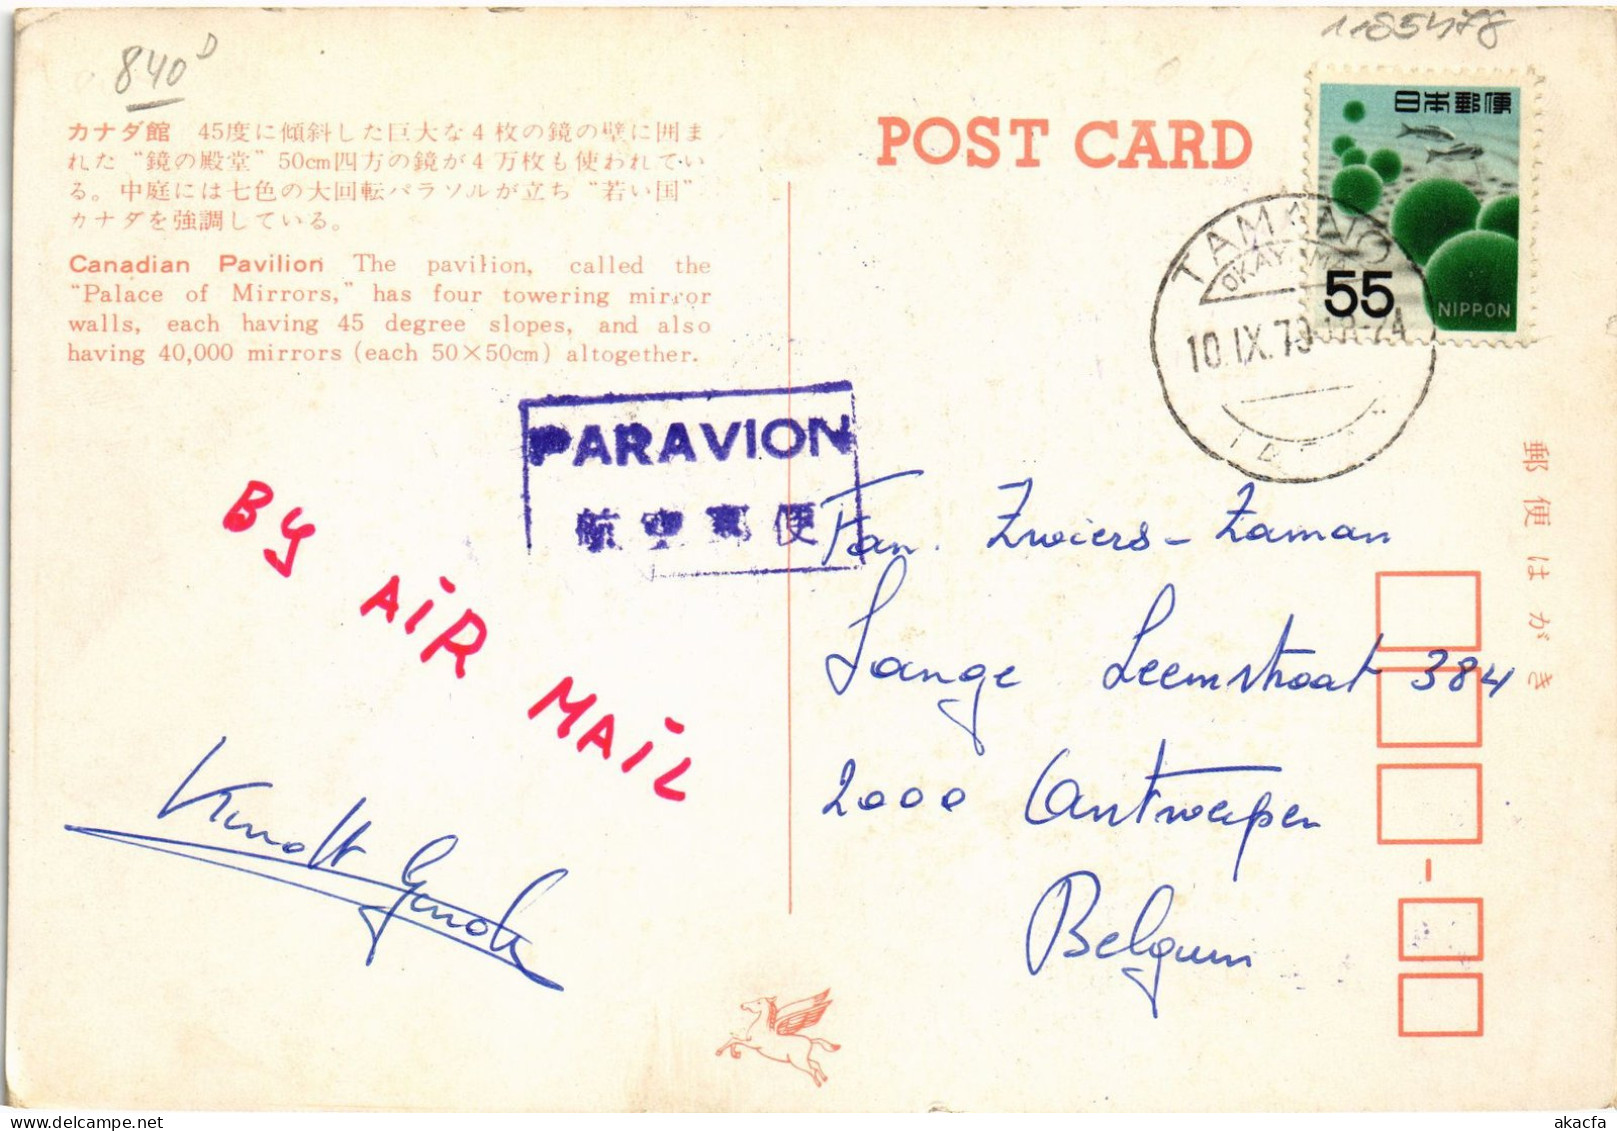 840D
1185478
カナダ館 45度に傾斜した巨大な4枚の鏡の壁に囲ま
れた“鏡の殿堂”50cm四方の鏡が4万枚も使われてい
る。中庭には七色の大回転パラソルが立ち“若い国”
カナダを強調している。
Canadian Pavilion The pavilion, called the
“Palace of Mirrors,” has four towering mirror
walls, each having 45 degree slopes, and also
having 40,000 mirrors (each 50×50cm) altogether.
POST CARD
日本郵便
55
NIPPON
OKAYAMA
10.IX.70
PARAVION
航空郵便
BY AIR MAIL
Fam. Zwiers-Zaman
Lange Leemstraat 384
2000 Antwerpen
Belgium
郵便はがき
akacfa